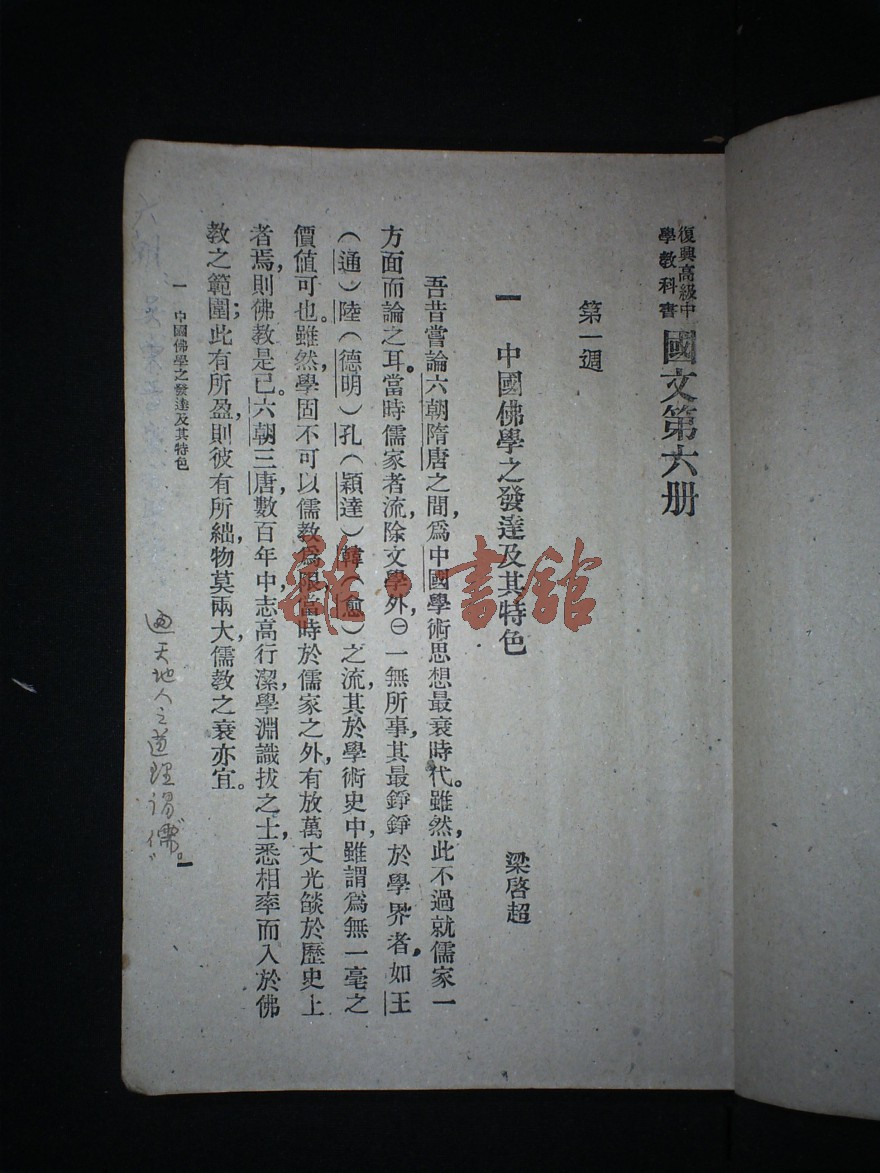 復興高級中
學教科書
國文第六册
第一週
一 中國佛學之發達及其特色
梁啓超
吾昔嘗論六朝隋唐之間，爲中國學術思想最衰時代。雖然，此不過就儒家一
方面而論之耳。當時儒家者流，除文學外，㊀一無所事，其最錚錚於學界者，如王
（通）陸（德明）孔（穎達）韓（愈）之流，其於學術史中，雖謂爲無一毫之
價值可也。雖然，學固不可以儒教爲限，當時於儒家之外，有放萬丈光燄於歷史上
者焉，則佛教是已。六朝三唐，數百年中，志高行潔，學淵識拔之士，悉相率而入於佛
教之範圍；此有所盈，則彼有所絀，物莫兩大，儒教之衰亦宜。
一 中國佛學之發達及其特色
一
通天地人之道理谓“儒”。
雜·書館